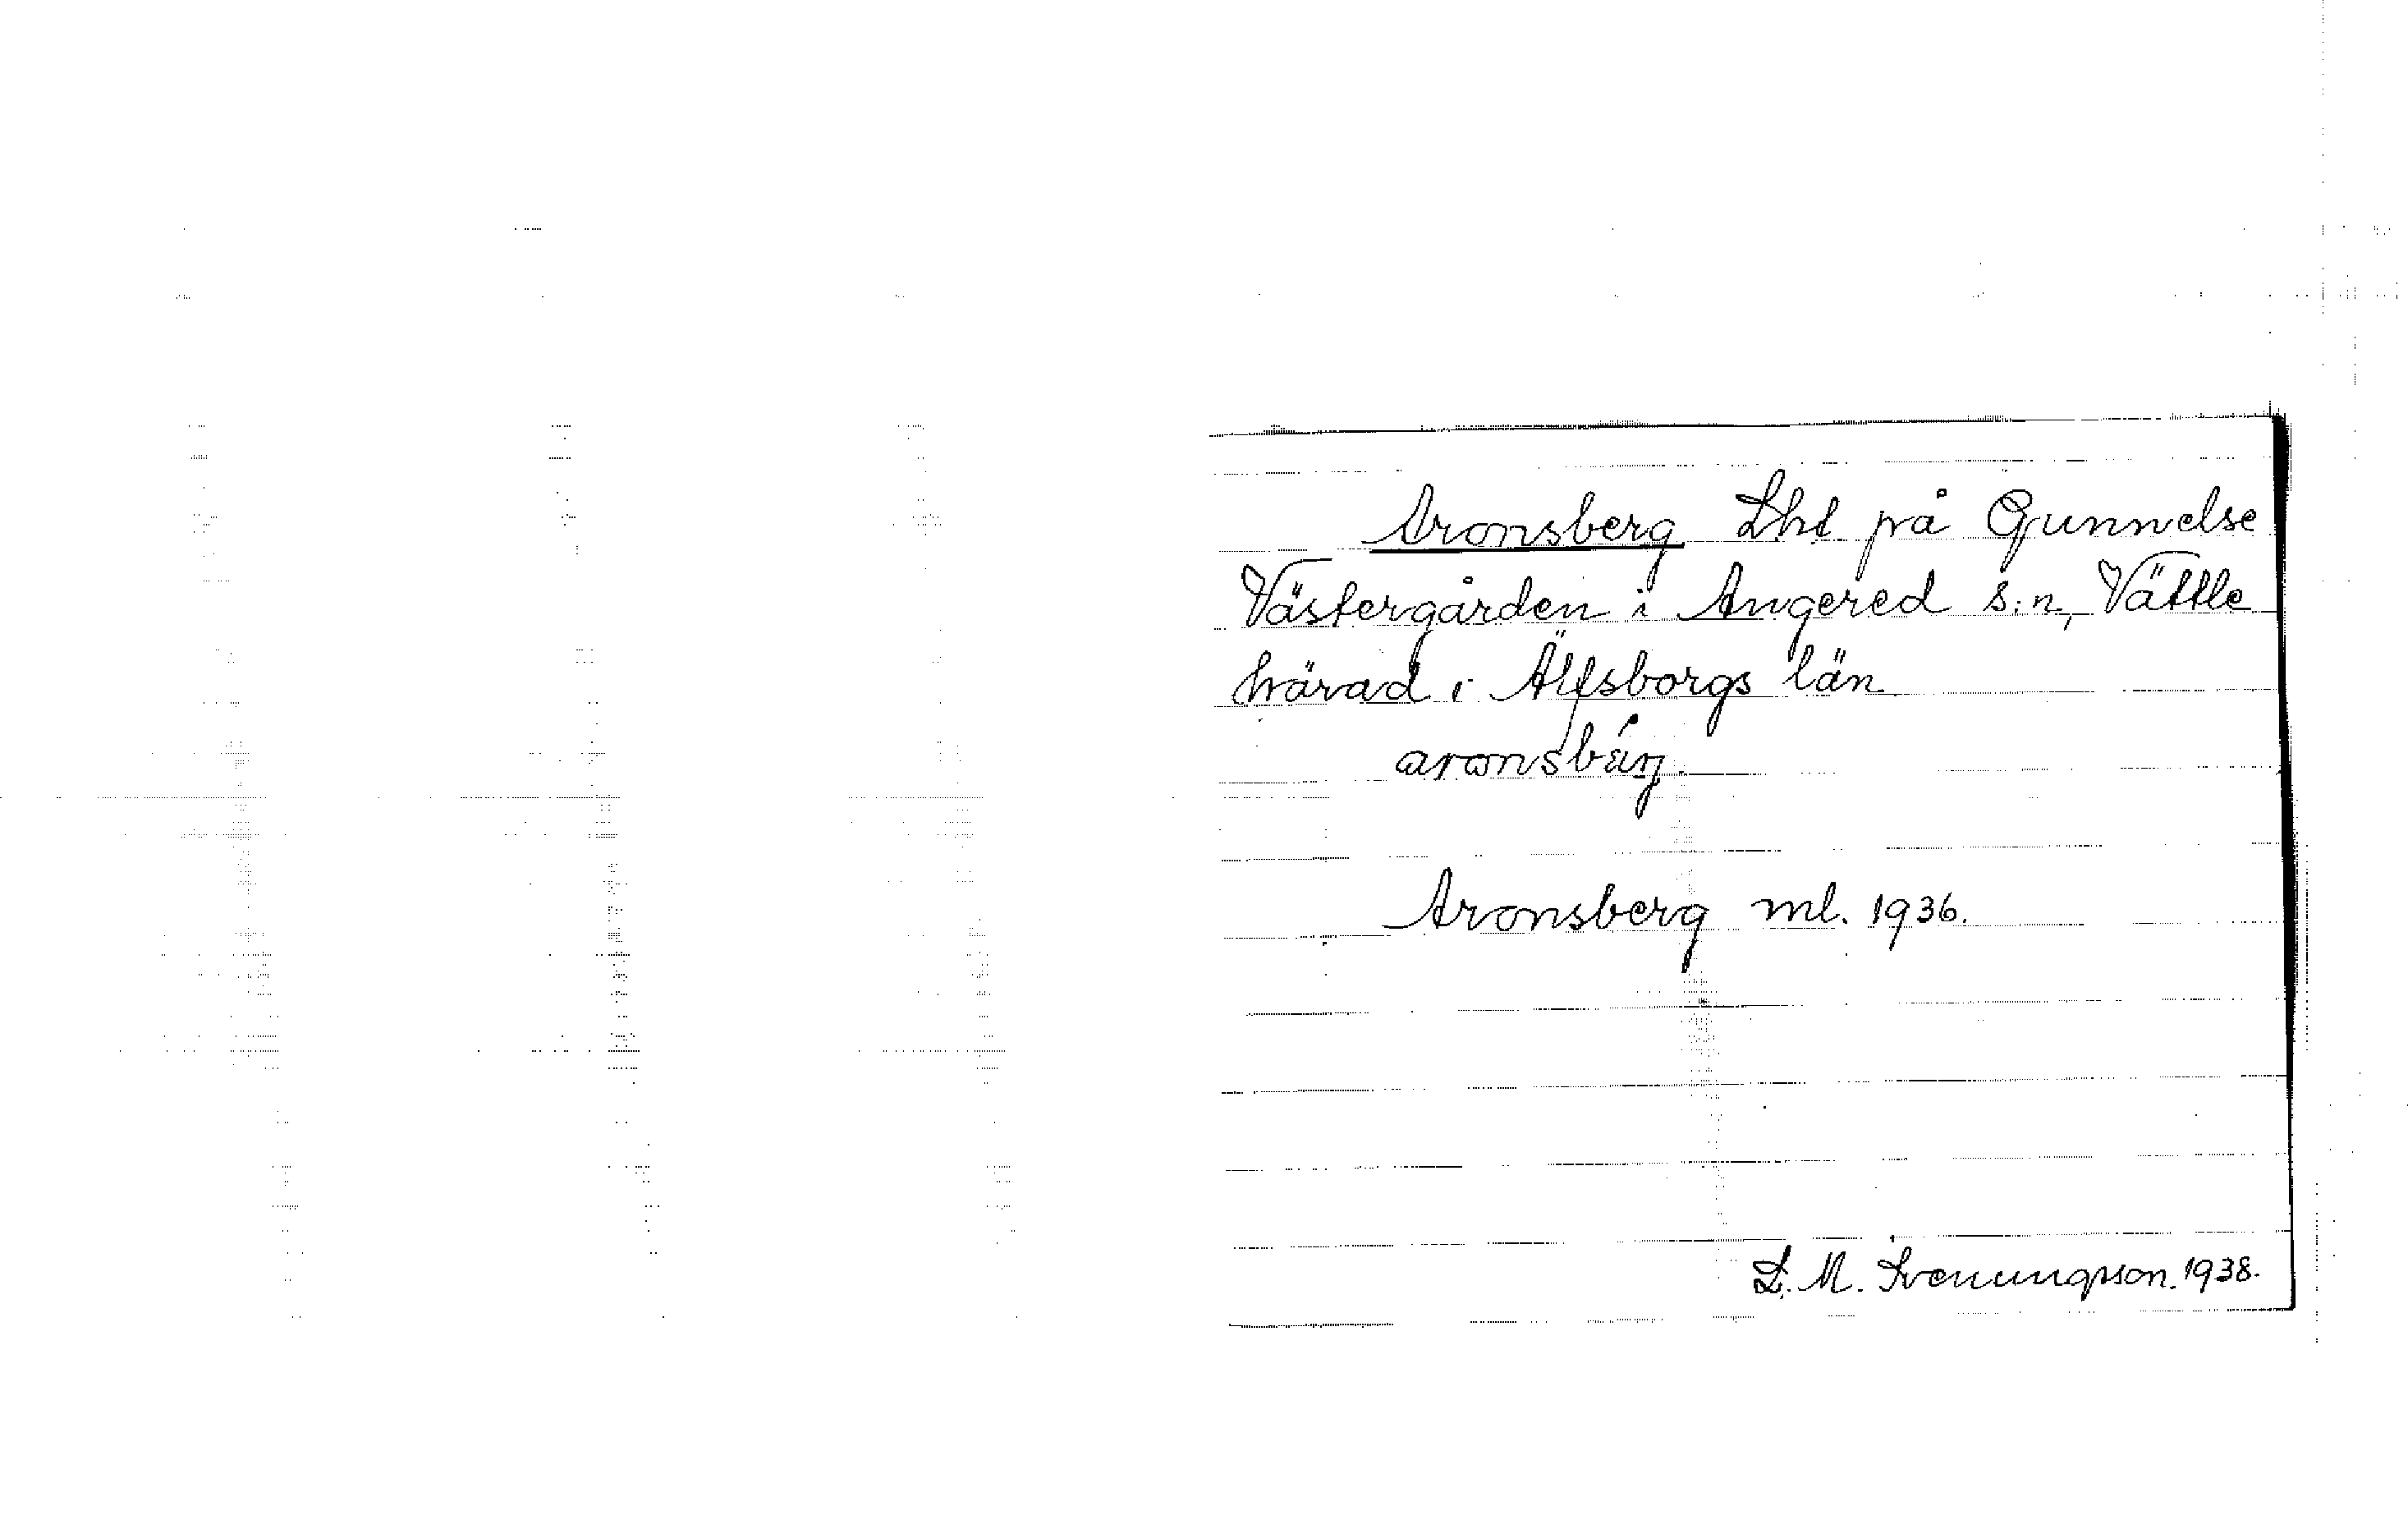 Aronsberg Lht på Gunnelse
Västergården i Angered s:n, Vättle
härad i Älfsborgs län
aronsbärj
Aronsberg ml. 1936.
L. M. Svenungsson. 1938.